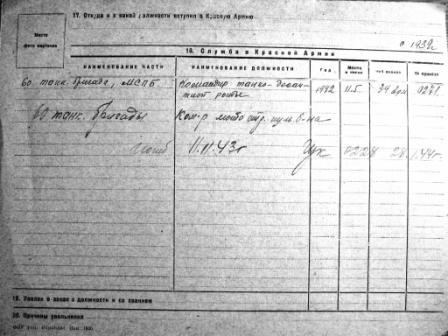 Место фото карточки
17. Откуда и в какой должности вступил в Красную Армию
с 1939г.
18. Служба в Красной Армии
НАИМЕНОВАНИЕ ЧАСТИ НАИМЕНОВАНИЕ ДОЛЖНОСТИ Год Месяц и число
60 танк. бригада, МСПБ командир танко-десантной роты 1942 11.5
60 танк. бригады Ком-р мото стр. пуль. в-на
погиб 11.11.43г 0228 28.1.44г.
19. Уволен в запас в должности и со званием
20. Причины увольнения